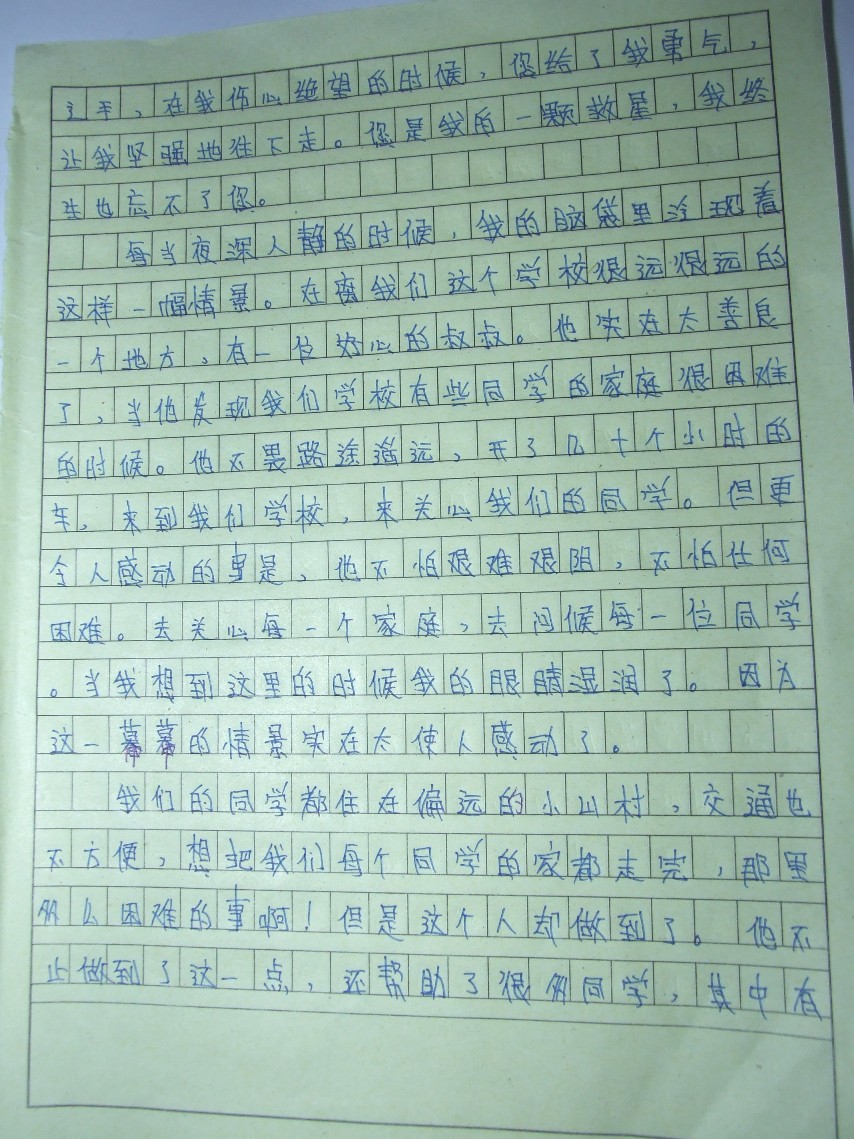 之手，在我伤心绝望的时候，您给了我勇气，
让我坚强地往下走。您是我的一颗救星，我终
生也忘不了您。
每当夜深人静的时候，我的脑袋里浮现着
这样一幅情景。在离我们这个学校很远很远的
一个地方，有一位好心的叔叔。他实在太善良
了，当他发现我们学校有些同学的家庭很困难
的时候。他不畏路途遥远，开了几十个小时的
车，来到我们学校，来关心我们的同学。但更
令人感动的事是，他不怕艰难艰阻，不怕任何
困难。去关心每一个家庭，去问候每一位同学
。当我想到这里的时候我的眼睛湿润了。因为
这一幕幕的情景实在太使人感动了。
我们的同学都住在偏远的小山村，交通也
不方便，想把我们每个同学的家都走完，那里
多么困难的事啊！但是这个人却做到了。他不
止做到了这一点，还帮助了很多同学，其中有